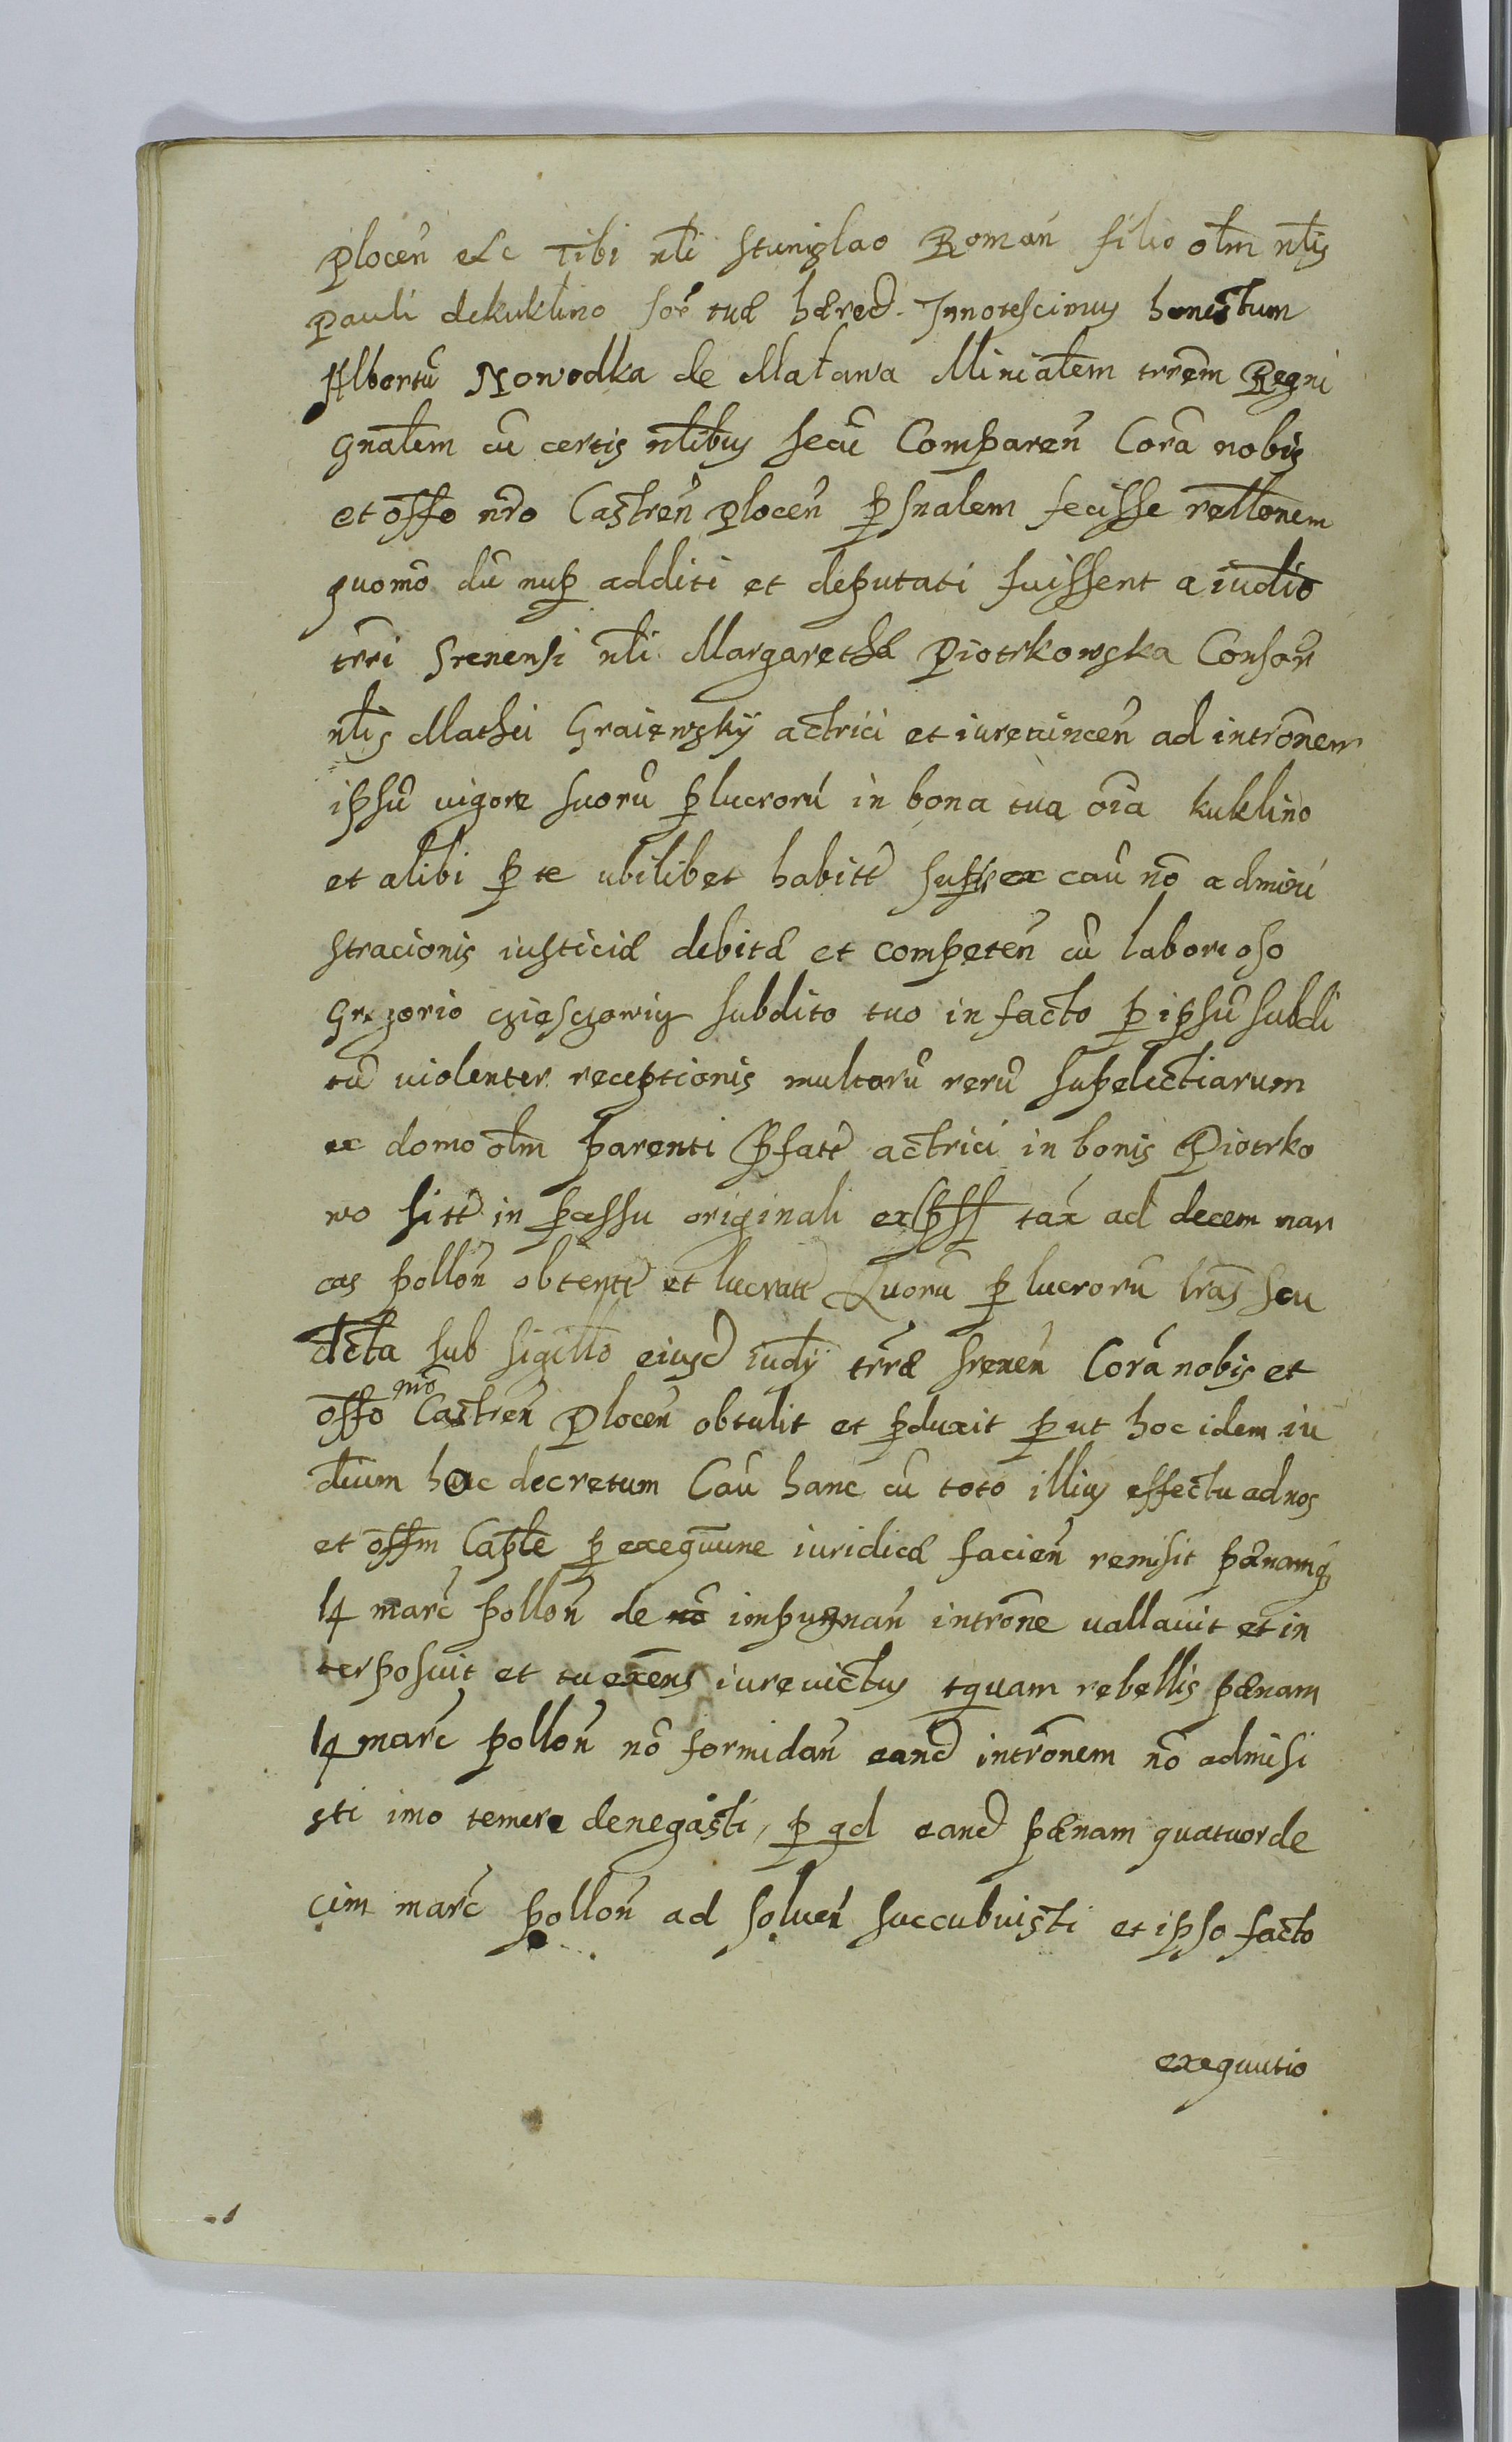 Plocen̄ etc Tibi nłi Stanislao Roman̄ filio ołm nłis
Pauli de kuklino sor̄ tuæ hæred. Innotescimus honestum
Albertū Nowodka de Maława Miniałem trrēm Regni
gnałem cū certis nłibus secū Comparen̄ Corā nobis
et offo nrō Castren̄ Plocen̄ psnalem fecisse rełłonem
quomō dū nup additi et deputati fuissent a iudło
trri Srenensi nłi Margarethæ Piotrkowska Consor̄
nłis Mathei Graiewskÿ actrici et iurevincen̄ ad intrōnem
ipsū vigore suorū plucrorū in bona tua oīa kuklino
et alibi p te ubilibet habitt ex caū nō admini
stracionis iusticiæ debitæ et competen̄ cū laborioso
Gregorio subdito tuo in facto p ipsū subdi
tū violenter receptionis multorū rerū supelectiarum
ex domo ołm parenti pfatt actrici in bonis Piotrko
wo sitt in passu originali tax̄ ad decem mar
cas pollon̄ obtentt et lucratt Quorū p lucrorū lrās seu
dctā sub sigillo eiusd iudÿ trræ srenen̄ Corā nobis et
offo nrō Castren̄ Plocen̄ obtulit et pduxit put hoc idem iu
dium hoc decretum Caū hanc cū toto illius effectu ad nos
et offm Capłe p exequūne iuridicæ facien̄ remisit pænamq
14 marc̄ pollon̄ de nō impugnan̄ intrōne vallavit et in
terposuit et tu exens iurevictus tquam rebellis pænam
14 marc̄ pollon̄ nō formidan̄ eand intrōnem nō admisi
sti imo temere denegasti, p qd eand pænam quatuorde
cim marc̄ pollon̄ ad soluen̄ succubuisti et ipso facto
exequutio